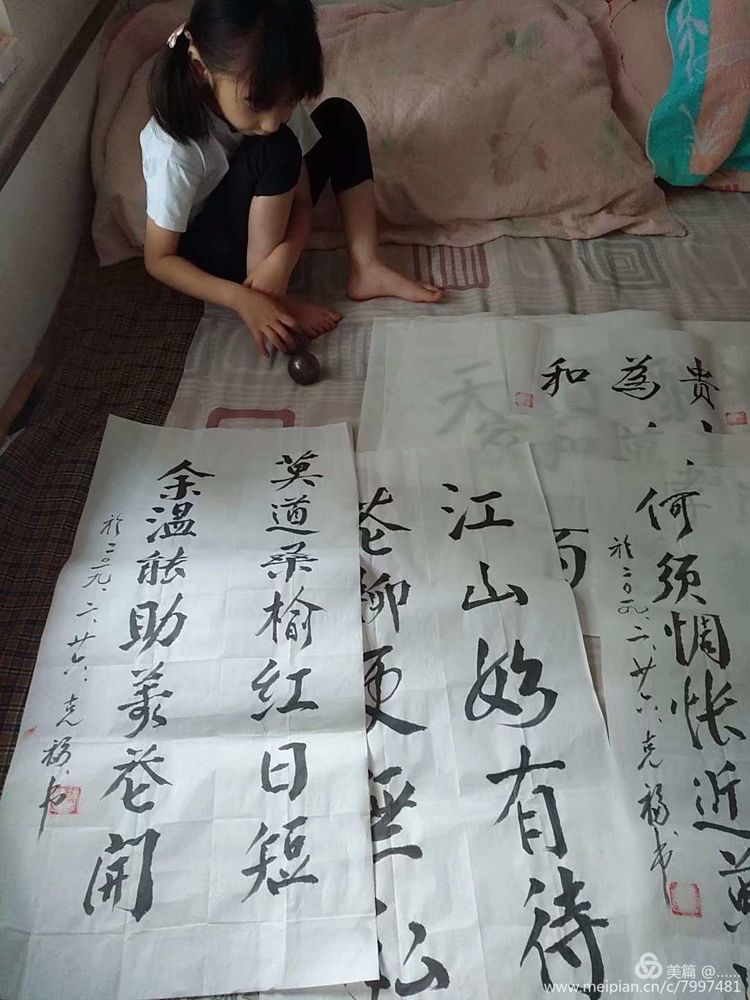 和為贵
莫道桑榆红日短
余温能助花開
於二〇一九、二、廿六、克福书
江山如有待
花柳更無私
何须惆怅近黄
於二〇一九、二、廿六、克福书
天
美篇 @......
www.meipian.cn/c/7997481